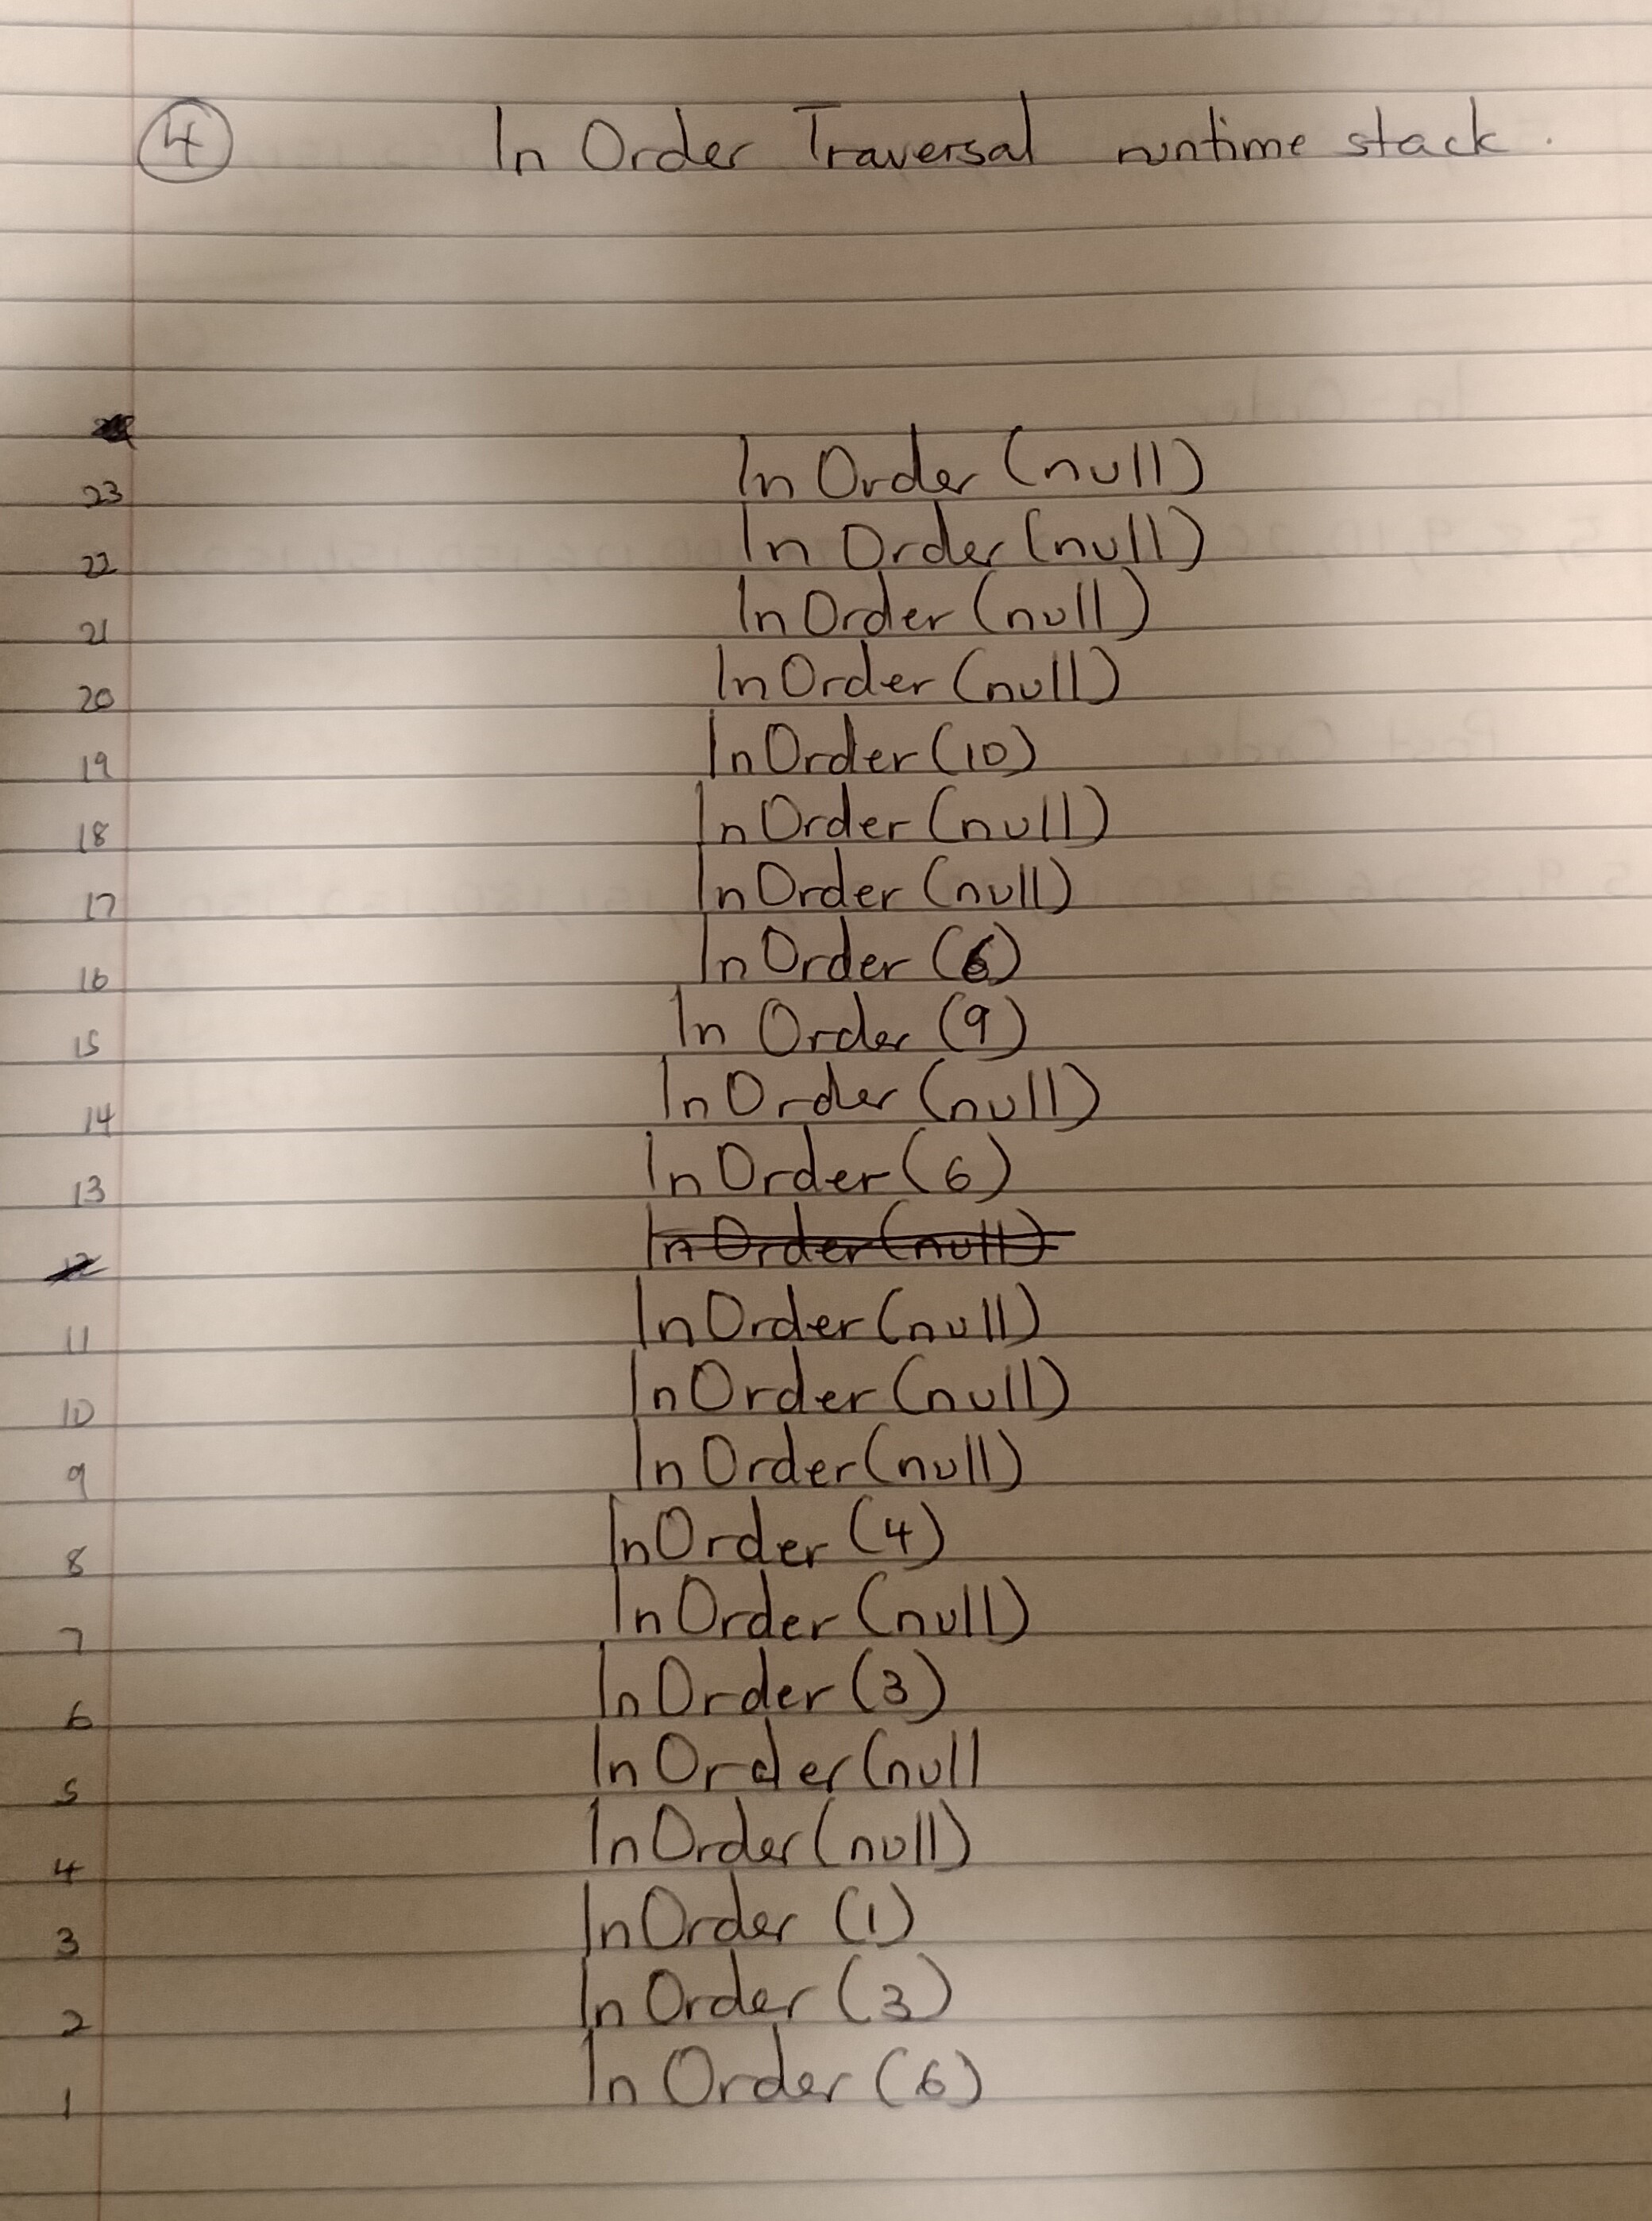 4 In Order Traversal runtime stack.
23 In Order (null)
22 In Order (null)
21 In Order (null)
20 In Order (null)
19 In Order (10)
18 In Order (null)
17 In Order (null)
16 In Order (6)
15 In Order (9)
14 In Order (null)
13 In Order (6)
12 In Order (null)
11 In Order (null)
10 In Order (null)
9 In Order (null)
8 In Order (4)
7 In Order (null)
6 In Order (3)
5 In Order (null
4 In Order (null)
3 In Order (1)
2 In Order (3)
1 In Order (6)